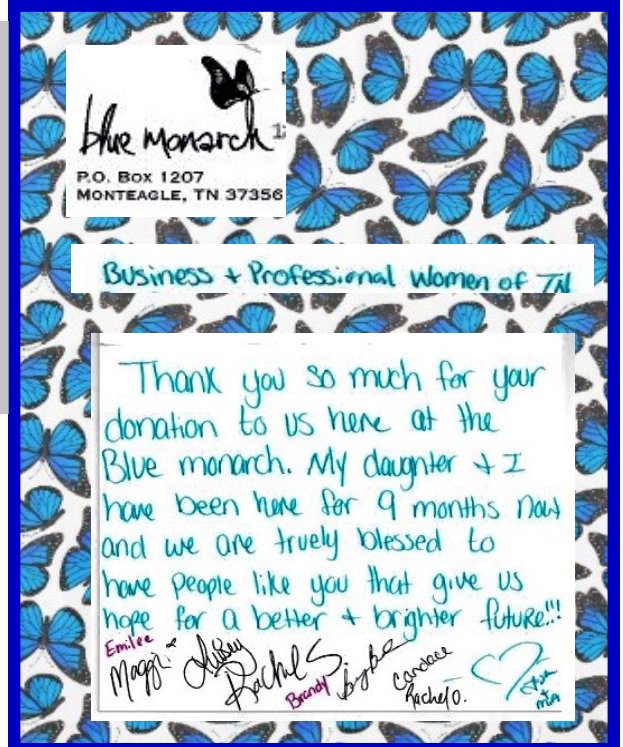 blue monarch
P.O. Box 1207
MONTEAGLE, TN 37356
Business + Professional Women of TN
Thank you so much for your
donation to us here at the
Blue monarch. My daughter + I
have been here for 9 months now
and we are truely blessed to
have people like you that give us
hope for a better + brighter future!!!
Emilee
Maggi Rachel S. Brandy Candace
Rachel O.